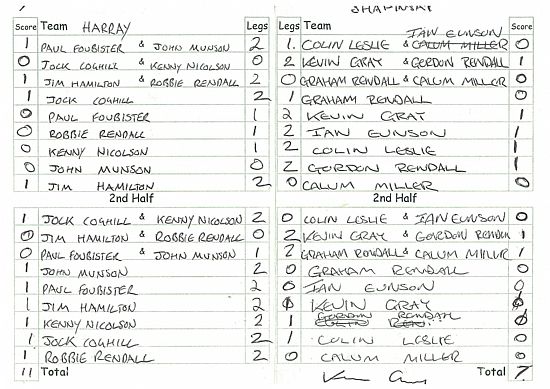 SHAPINSAY
Score Team HARRAY Legs Legs Team IAN EUNSON Score
1 PAUL FOUBISTER & JOHN MUNSON 2 1. COLIN LESLIE & CALUM MILLER 0
0 JOCK COGHILL & KENNY NICOLSON 0 2 KEVIN GRAY & GORDON RENDALL 1
1 JIM HAMILTON & ROBBIE RENDALL 2 0 GRAHAM RENDALL & CALUM MILLER 0
1 JOCK COGHILL 2 1 GRAHAM RENDALL 0
0 PAUL FOUBISTER 1 2 KEVIN GRAY 1
0 ROBBIE RENDALL 1 2 IAN EUNSON 1
0 KENNY NICOLSON 1 2 COLIN LESLIE 1
0 JOHN MUNSON 0 2 GORDON RENDALL 1
1 JIM HAMILTON 2 0 CALUM MILLER 0
2nd Half 2nd Half
1 JOCK COGHILL & KENNY NICOLSON 2 0 COLIN LESLIE & IAN EUNSON 0
0 JIM HAMILTON & ROBBIE RENDALL 0 2 KEVIN GRAY & GORDON RENDALL 1
0 PAUL FOUBISTER & JOHN MUNSON 1 2 GRAHAM RENDALL & CALUM MILLER 1
1 JOHN MUNSON 2 0 GRAHAM RENDALL 0
1 PAUL FOUBISTER 2 0 IAN EUNSON 0
1 JIM HAMILTON 2 0 KEVIN GRAY 0
1 KENNY NICOLSON 2 1 GORDON RENDALL 0
1 JOCK COGHILL 2 1 COLIN LESLIE 0
1 ROBBIE RENDALL 2 0 CALUM MILLER 0
11 Total Total 7.